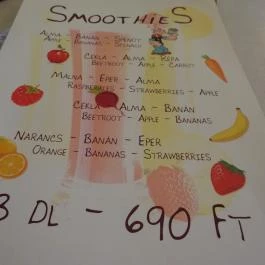 SMOOTHIES
ALMA - BANÁN - SPENÓT
APPLE - BANANAS - SPINACH
CÉKLA - ALMA - RÉPA
BEETROOT - APPLE - CARROT
MÁLNA - EPER - ALMA
RASPBERRIES - STRAWBERRIES - APPLE
CÉKLA - ALMA - BANÁN
BEETROOT - APPLE - BANANAS
NARANCS - BANÁN - EPER
ORANGE - BANANAS - STRAWBERRIES
3 DL - 690 FT